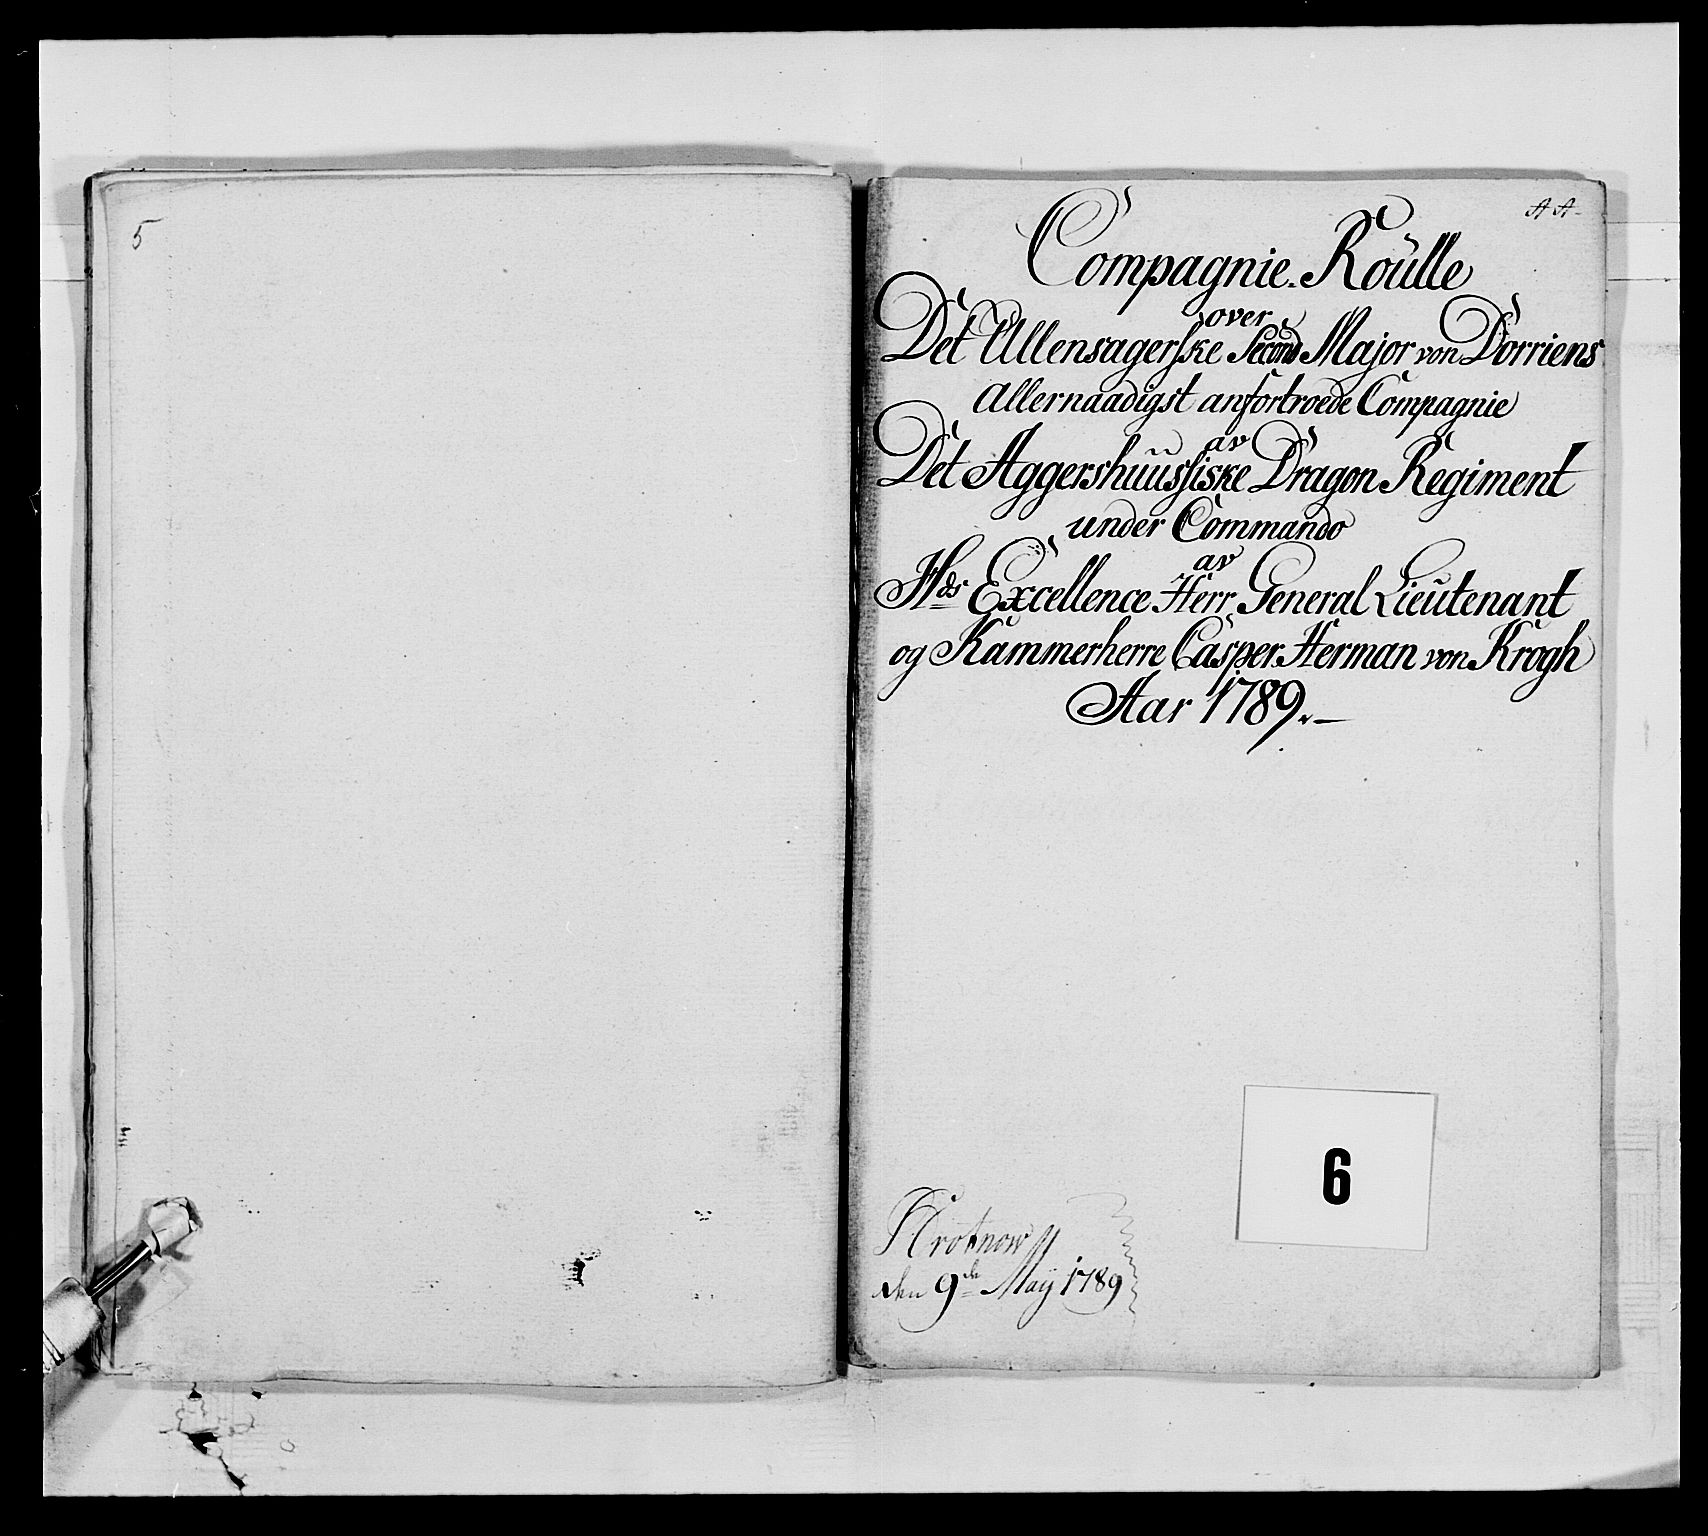 5
A A-
Compagnie. Roulle
over
Det Ullensagerske Second Major von Dorriens
Allernaadigst anfortroede Compagnie
av
Det Aggershuusiske Dragon Regiment
under Commando
av
Hds Excellence Herr General Lieutenant
og Kammerherre Casper Herman von Krogh
Aar 1789.-
6
den 9de Maÿ 1789